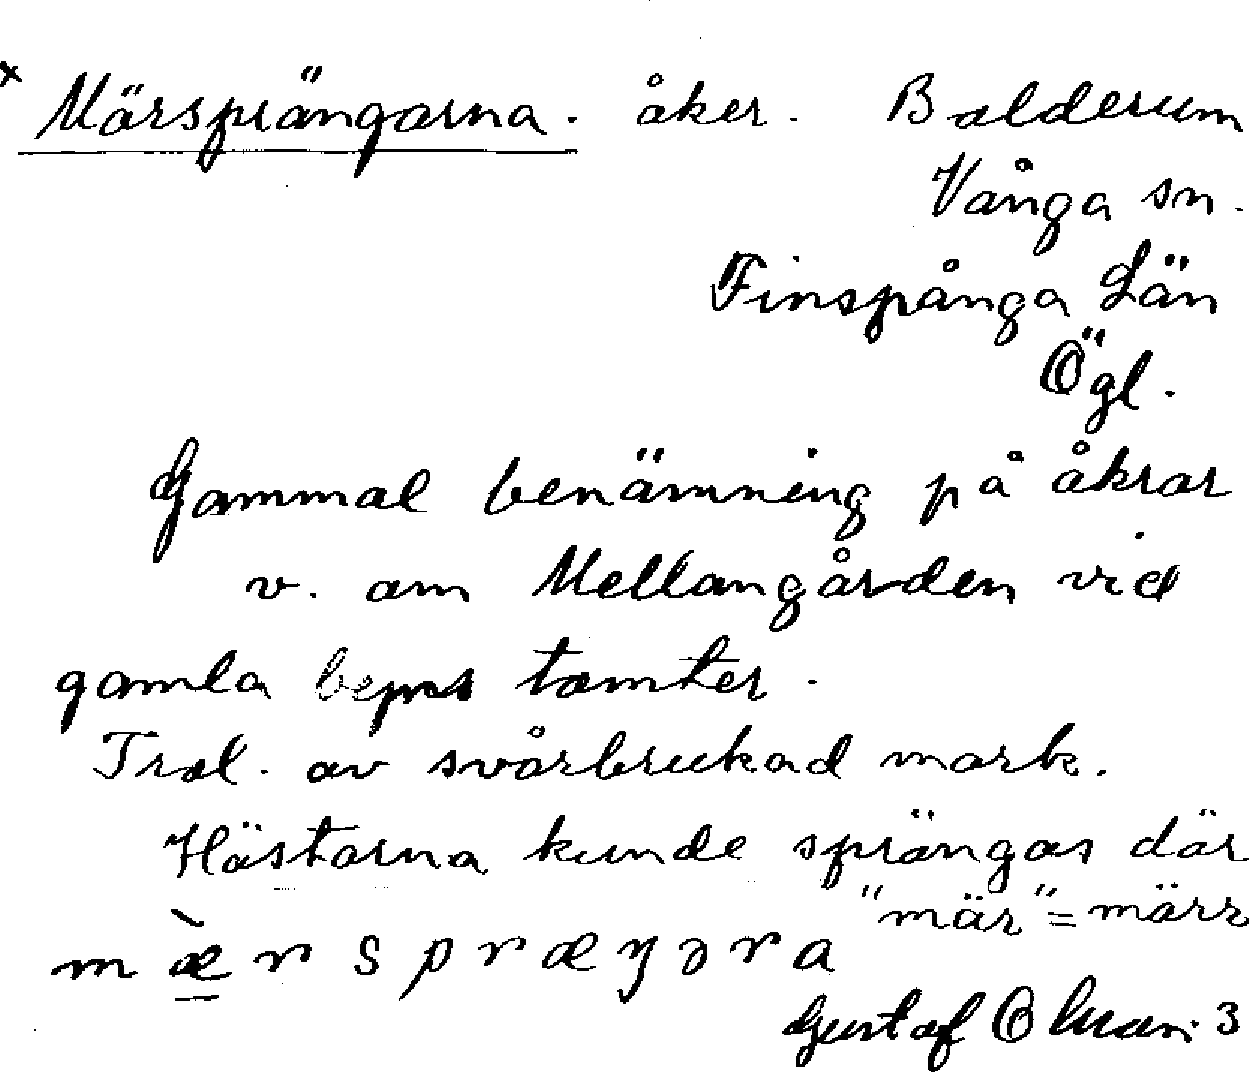 x Märsprängarna. åker. Balderum
Vånga sn.
Finspånga Län
Ögl.
Gammal benämning på åkrar
v. om Mellangården vid
gamla tomter.
Trol. av svårbrukad mark.
Hästarna kunde sprängas där
"mär" = märr
mæ̀rspræŋəra
Gustaf